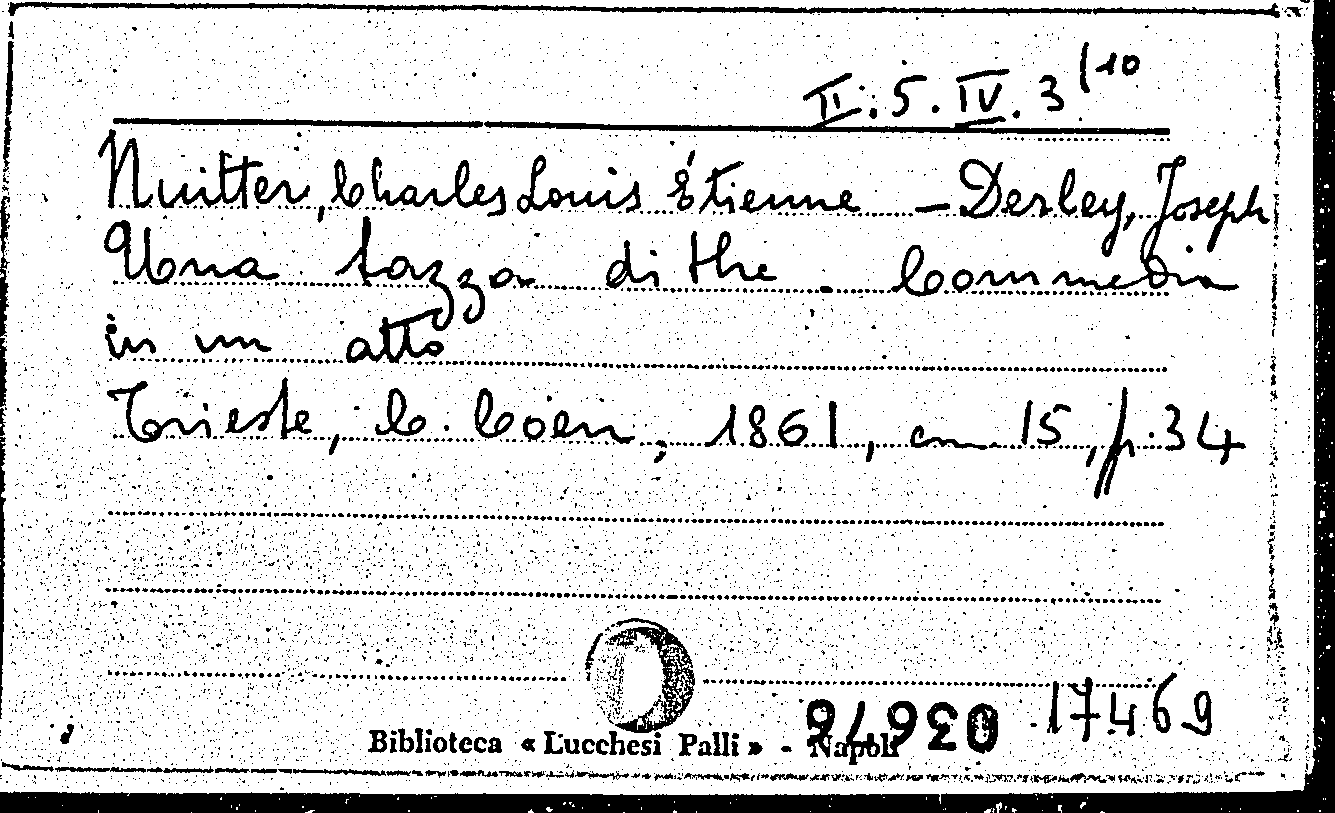 II.5.IV.3/10
Nuitter, Charles Louis Étienne - Derley, Joseph
Una tazza di the. Commedia
in un atto
Trieste, C. Cöen, 1861, cm. 15, p. 34
17469
Biblioteca « Lucchesi Palli » - Napoli